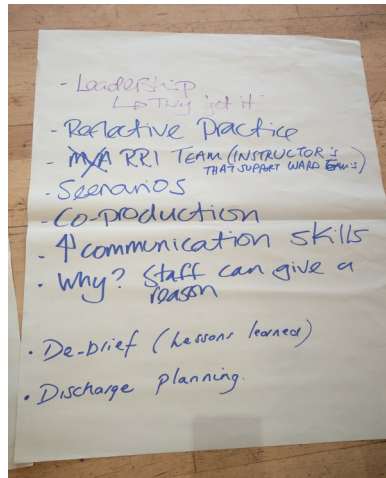 - Leadership
↳ They 'get it'
- Reflective Practice
- RRI TEAM (INSTRUCTOR'S
THAT SUPPORT WARD
- Scenarios
- Co-production
- ↑ communication skills
- Why? Staff can give a
reason
• De-brief (Lessons learned)
• Discharge planning.